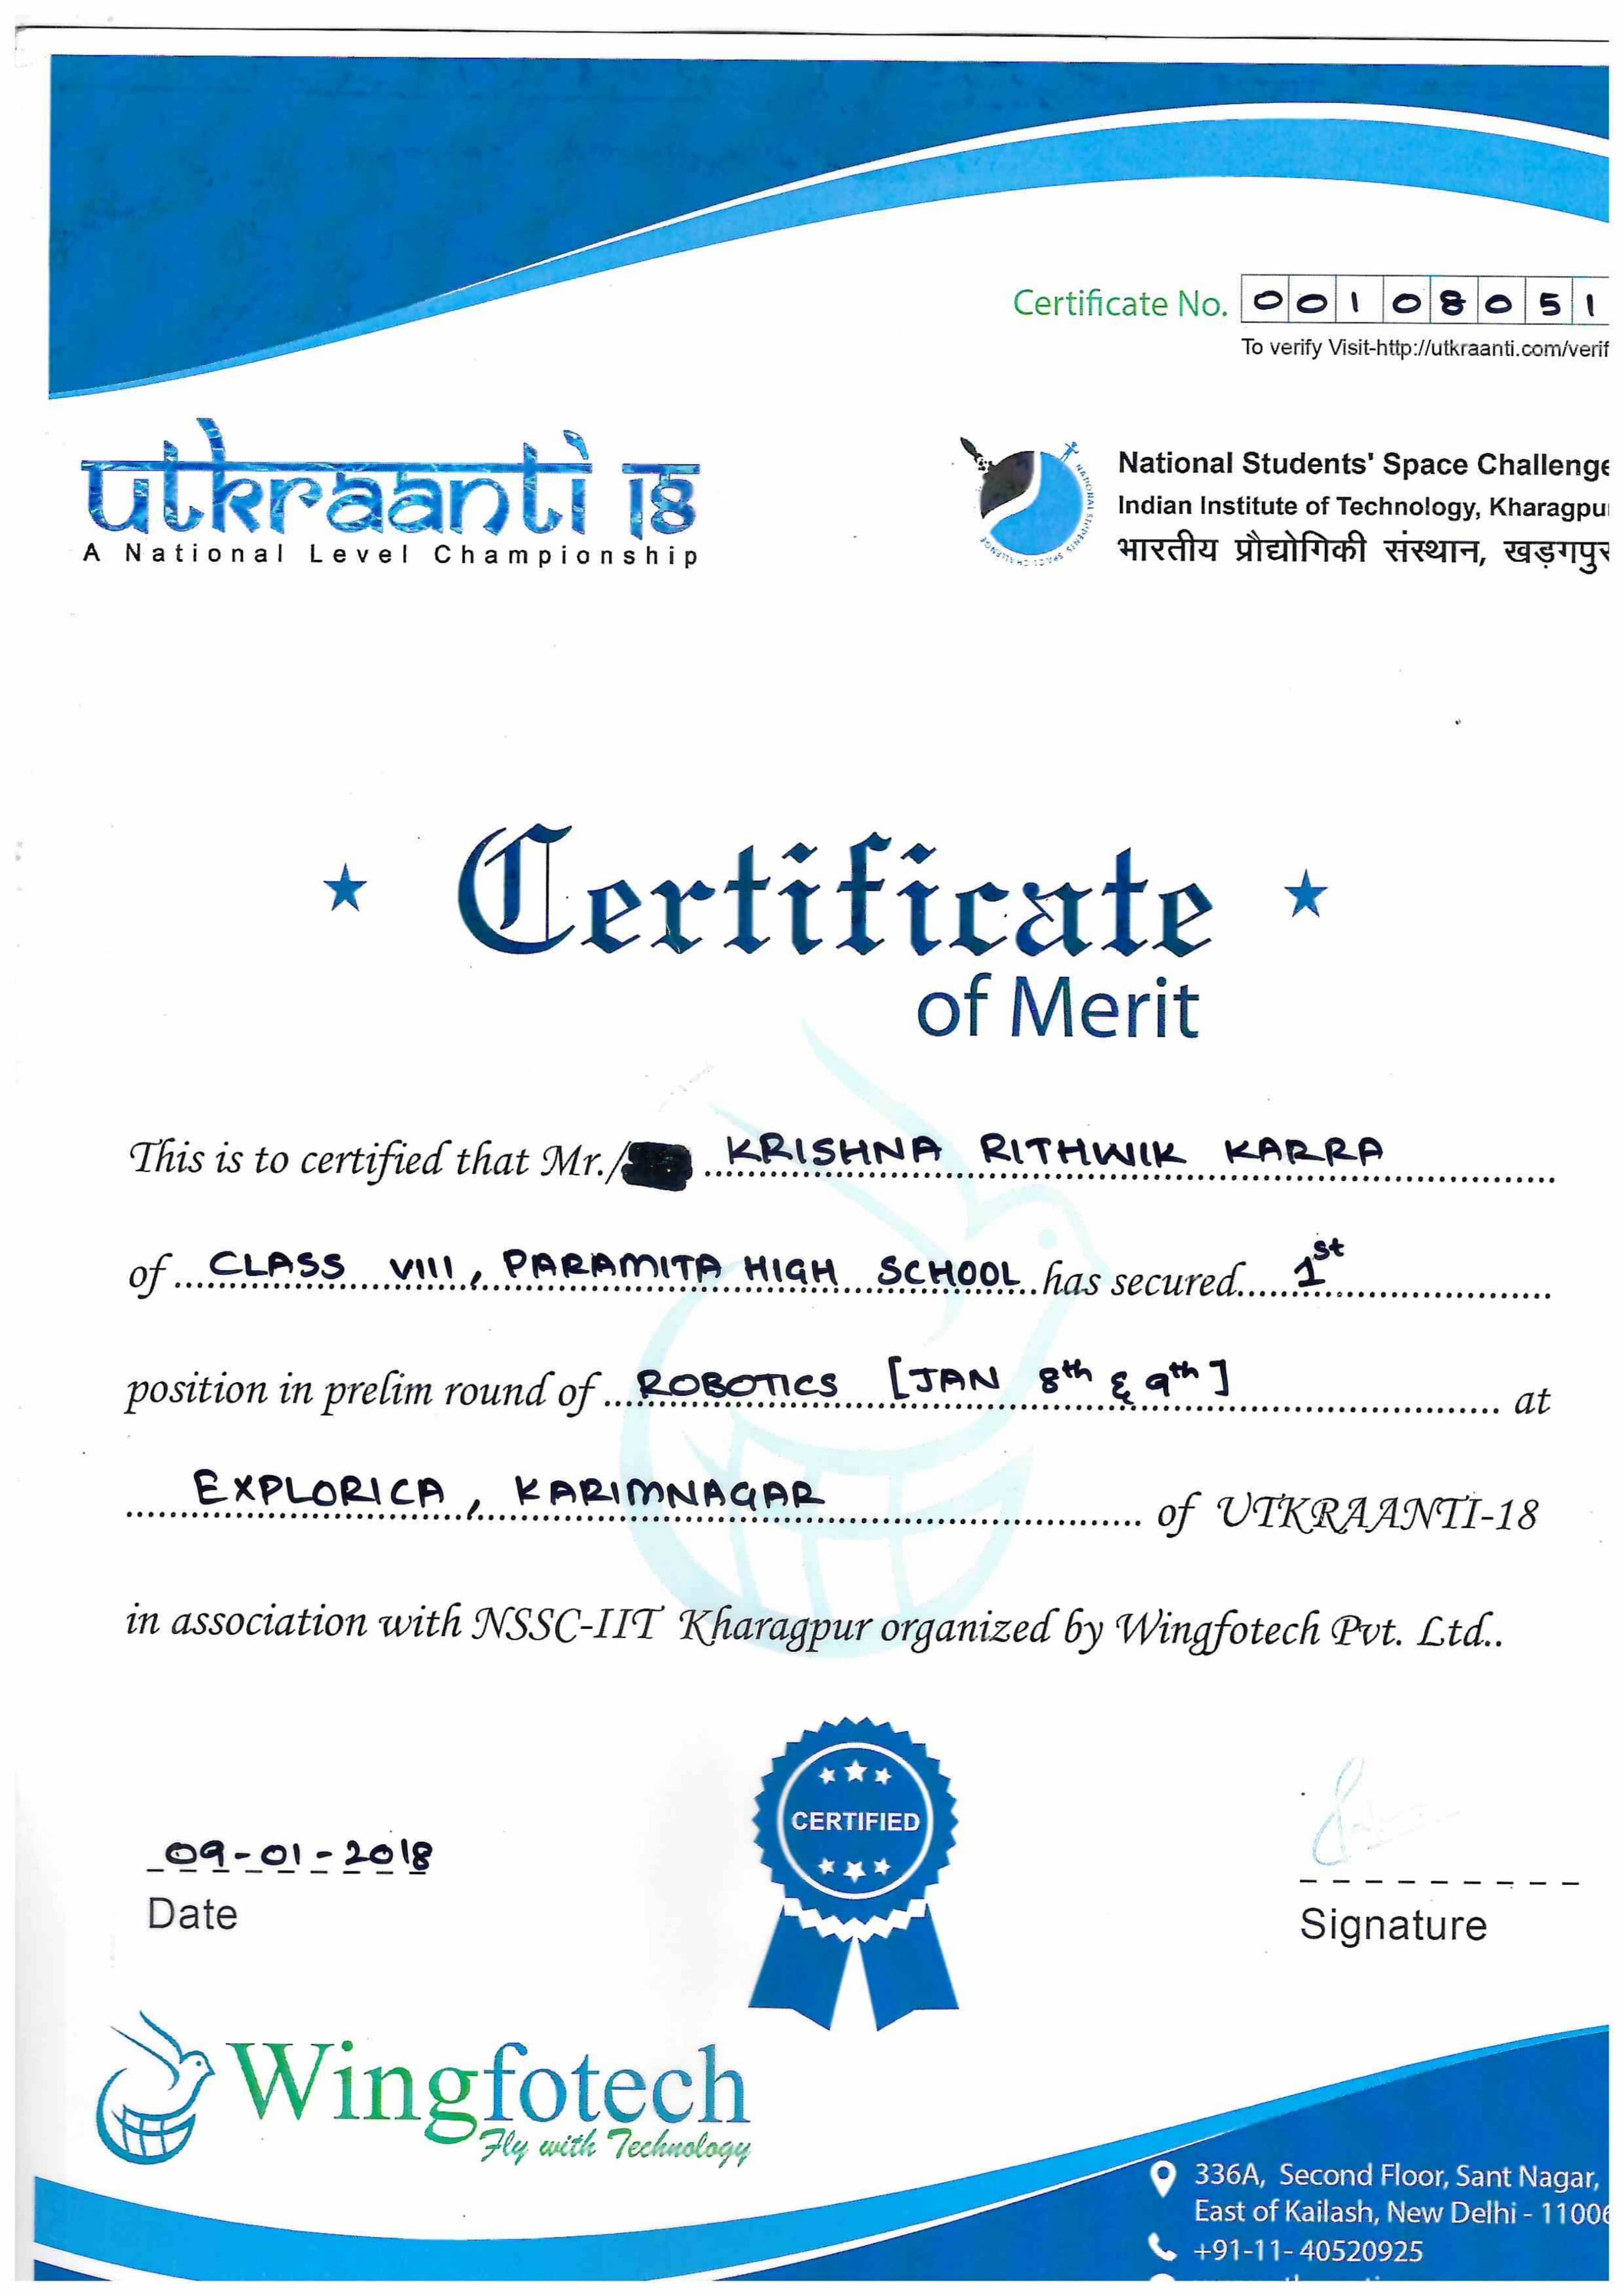 Certificate No. 00108051
To verify Visit-http://utkraanti.com/verif
utkraanti 18
A National Level Championship
National Students' Space Challenge
Indian Institute of Technology, Kharagpur
भारतीय प्रौद्योगिकी संस्थान, खड़गपुर
NATIONAL STUDENTS SPACE CHALLENGE
Certificate
of Merit
This is to certified that Mr./ KRISHNA RITHWIK KARRA
of CLASS VIII, PARAMITA HIGH SCHOOL has secured 1st
position in prelim round of ROBOTICS [JAN 8th & 9th] at
EXPLORICA, KARIMNAGAR of UTKRAANTI-18
in association with NSSC-IIT Kharagpur organized by Wingfotech Pvt. Ltd..
CERTIFIED
09-01-2018
Date
Signature
Wingfotech
Fly with Technology
336A, Second Floor, Sant Nagar,
East of Kailash, New Delhi - 11006
+91-11-40520925